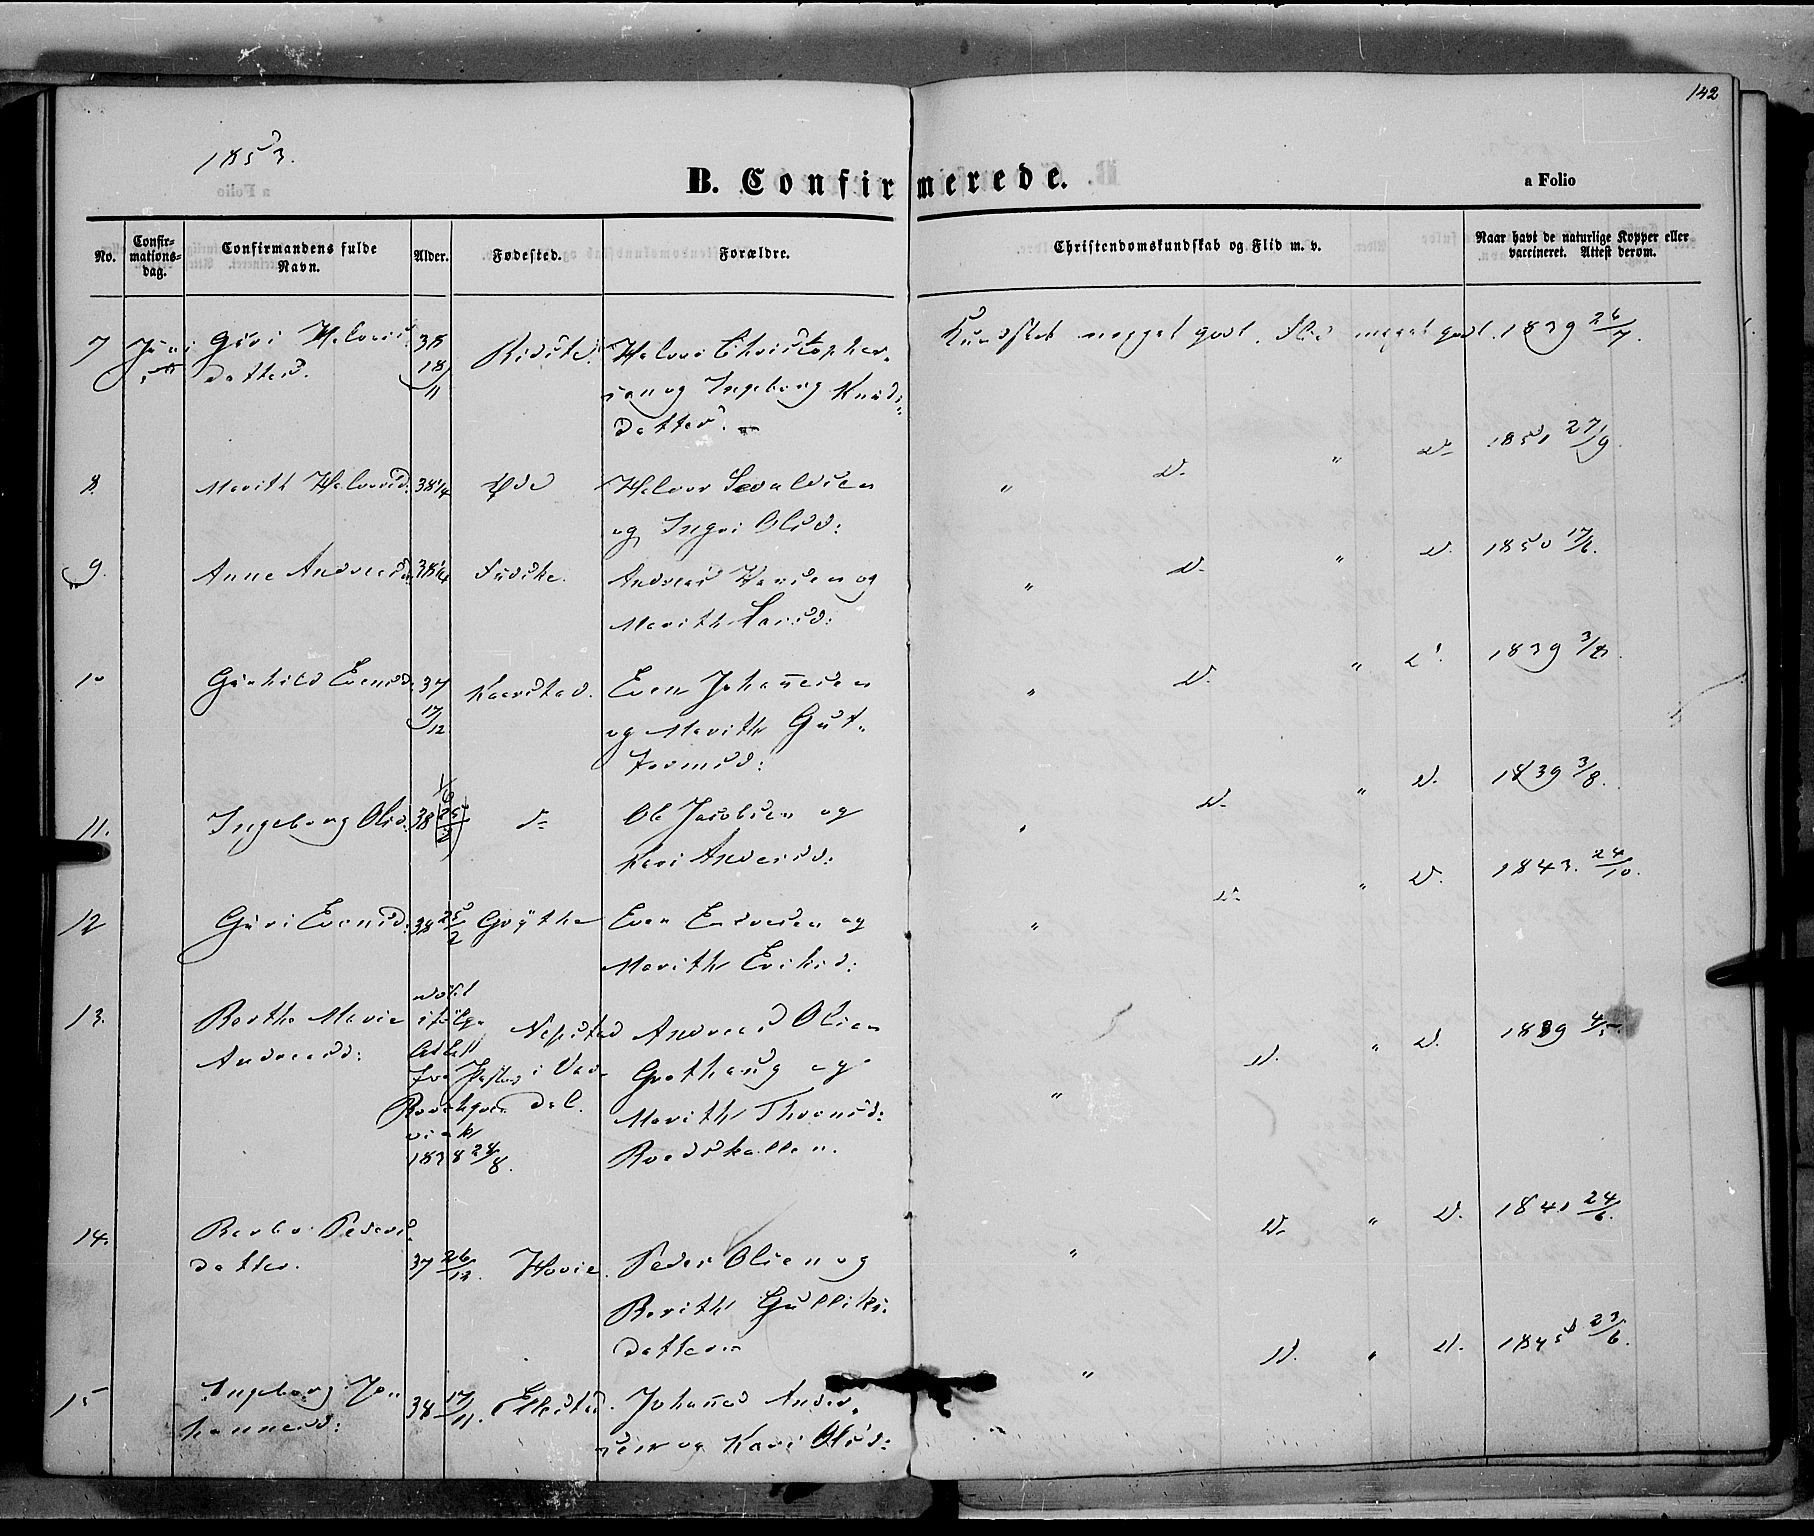 142
1853.
B. Confirmerede.
a Folio
No.
Confir-
mations-
dag.
Confirmandens fulde
Navn.
Alder.
Fødested.
Forældre.
Christendomskundskab og Flid m. v.
Naar havt de naturlige Kopper eller
vaccineret. Attest derom.
7 Guri Halvors 38 Halvor Christopher-
datter. 18/11 sen og Ingeborg Knuds-
datter.
Kundskab meget godt. Flid meget godt. 1839 26/7.
8. Marith Halvorsd. 38 Øde Halvor Sevaldsen
og Ingri Olsd:
" D. " D. 1851 27/9
9. Anne Andreasd. 38 Andreas Hansen og
Marith Larsd:
" D. " D. 1850 17/6.
10 Gunhild Evensd. 37 Kaarstad. Even Johannesen
17/12 og Marith Gut-
tormsd:
" D. " D. 1839 3/8.
11. Ingeborg Olsd. 38 d= Ole Jacobsen og
Kari Andersd:
" D. " D. 1839 3/8.
12 Guri Evensd. 38 25/2 Grythe Even Endresen og
Marith Eriksd:
" D. " D. 1843. 24/10.
13. Berthe Marie Nepstad Andreas Olsen
Andreasd: ifølge Attest
fra i Var-
dal. Grothaug og
Marith Thronsd:
1838 24/8. Roedskallen.
" D. " D. 1839 4/5
14. Barbro Peders-
datter. 37 26/12. Hovie. Peder Olsen og
Berith Gulliks-
datter.
" D. " D. 1841 24/6.
15 Ingeborg Jo-
hannesd: 38 17/11. Ellestad. Johannes Ander-
sen og Kari Olsd:
" D. " D. 1845 23/6.